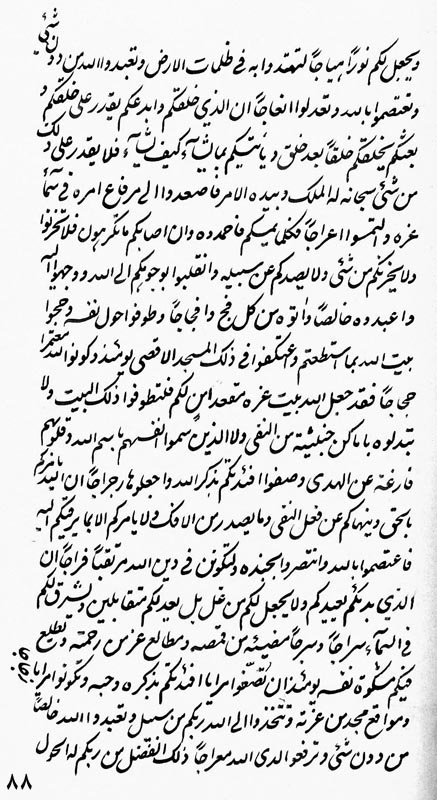 شئ
ويجعل لكم نوراً هياجاً لتهتدوا به في ظلمات الارض وتعبدوا الله من دون
وتعتصموا بالله وتعدلوا انعاجاً ان الذي خلقكم وابدعكم يقدر على خلقكم و
بعثكم يخلقكم خلقاً بعد خلق وينشئكم بما يشآء كيف يشآء فلا يقدر على ذلك
من شئ سبحانه له الملك وبيده الامر فاصعدوا الى مرفاع امره في سمآء
عزه والتمسوا اعراجاً فكلما يمسكم فاحمدوه وان اصابكم ما تكرهون فلا تحزنوا
ولا يحزنكم من شئ ولا يصدكم عن سبيله وانقلبوا بوجوهكم الى الله ووجهوا اليه
واعبدوه خالصاً واتوه من كل فج وافجاجاً وطوفوا حول نفسه وحجوا
بيت الله بما استطعتم واعتكفوا في ذلك المسجد الاقصى يومئذ وكونوا لله معتمراً
حجاجاً فقد جعل الله بيت عزه مقعد امن لكم فلتطوفوا ذلك البيت ولا
تبدلوه باماكن خبيثة من النفى ولا الذين سموا انفسهم باسم الله وقلوبهم
فارغة عن الهدى وصفوا افئدتكم بذكر الله واجعلوها رجراجاً ان الله يامركم
بالحق وينهاكم عن فعل النفى وما يصدر من الافك ولا يامركم الا بما يرقيكم اليه
فاعتصموا بالله وانتصروا بجنده ولتكونن في دين الله مرتقباً فراجاً ان
الذي بدئكم يعيدكم ولا يجعل لكم من غل بل يعيدكم متقابلين وليشرق لكم
في السمآء سراجاً وسرجاً مضيئة من قمصه ومطالع عز من رحمته وتطلع
فيكم مشكوة نفسه يومئذ ان تصفوا مرايا افئدتكم بذكره وحبه وتكونوا مرايا
ومواقع مجد من عزته وتتخذوا الى الله ربكم من سبل وتعبدوا الله خالصاً
من دون شئ وترفعوا لدى الله معراجاً ذلك الفضل من ربكم له الحول
٨٨